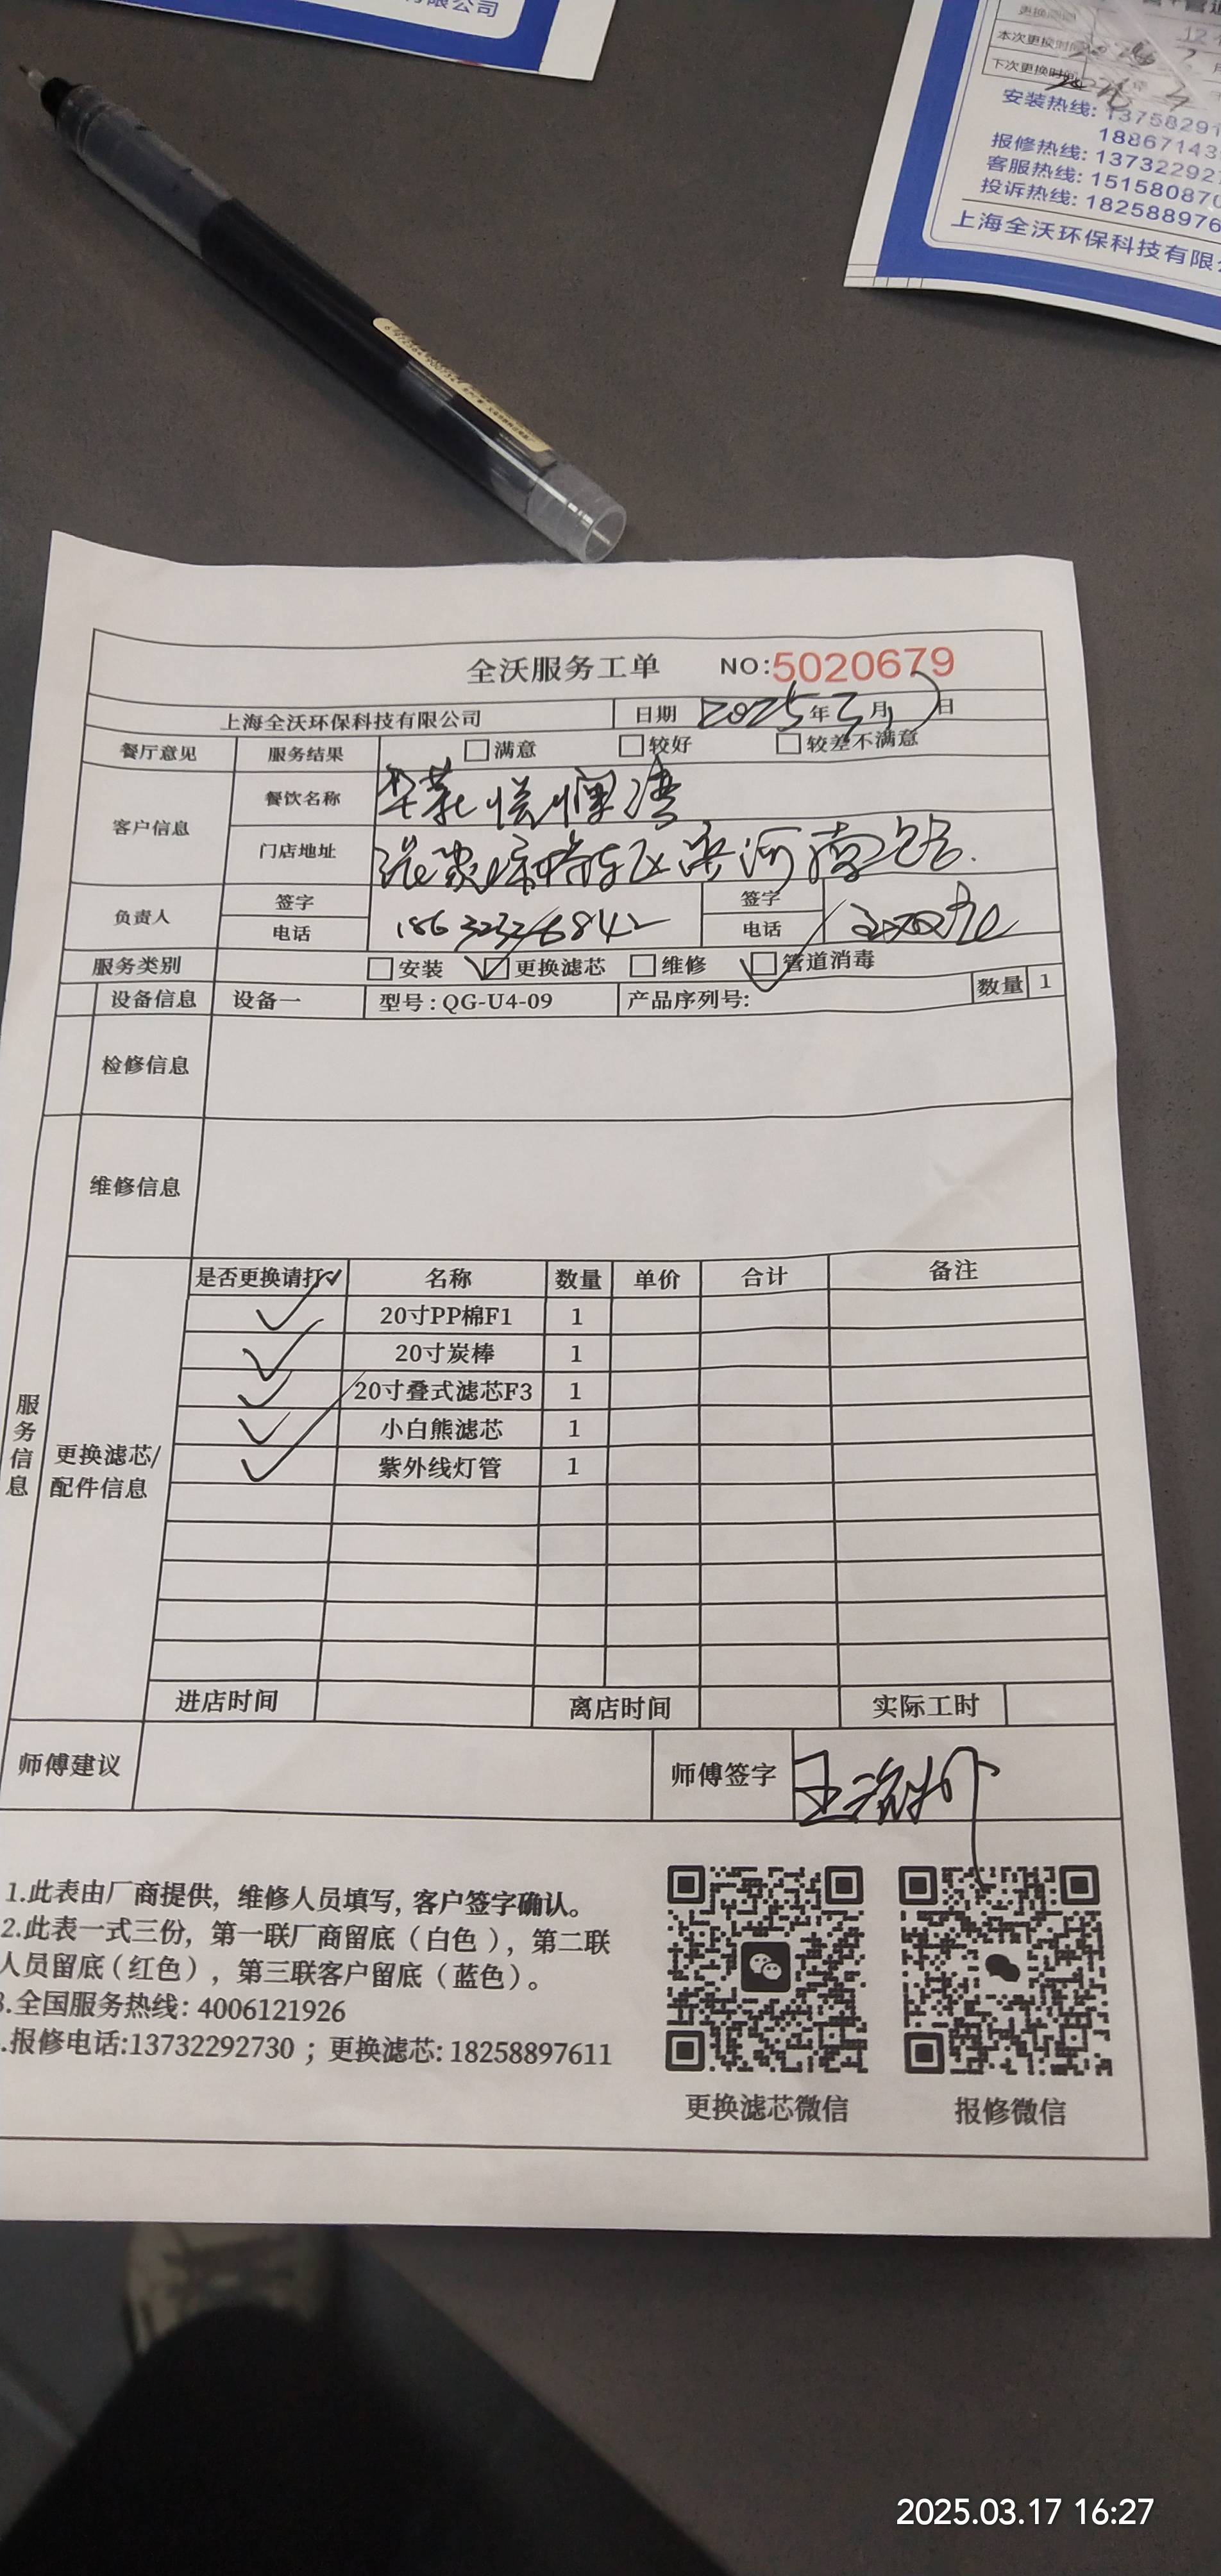 有限公司
更换周期
12个
本次更换时间
下次更换时间
安装热线: 13758291
18867143
报修热线: 1373229273
客服热线: 151580870
投诉热线: 182588976
上海全沃环保科技有限公
全沃服务工单 NO:5020679
上海全沃环保科技有限公司 日期 2025年3月17日
餐厅意见 服务结果 □满意 □较好 □较差不满意
客户信息 餐饮名称
门店地址
负责人 签字 签字
电话 18632326842 电话
服务类别 □安装 ☑更换滤芯 □维修 ☑管道消毒
设备信息 设备一 型号:QG-U4-09 产品序列号: 数量 1
检修信息
维修信息
服务信息
更换滤芯/
配件信息
是否更换请打✓ 名称 数量 单价 合计 备注
✓ 20寸PP棉F1 1
✓ 20寸炭棒 1
✓ 20寸叠式滤芯F3 1
✓ 小白熊滤芯 1
✓ 紫外线灯管 1
进店时间 离店时间 实际工时
师傅建议 师傅签字
1.此表由厂商提供, 维修人员填写, 客户签字确认。
2.此表一式三份, 第一联厂商留底(白色), 第二联
人员留底(红色), 第三联客户留底(蓝色)。
3.全国服务热线: 4006121926
.报修电话:13732292730 ; 更换滤芯: 18258897611
更换滤芯微信 报修微信
2025.03.17 16:27